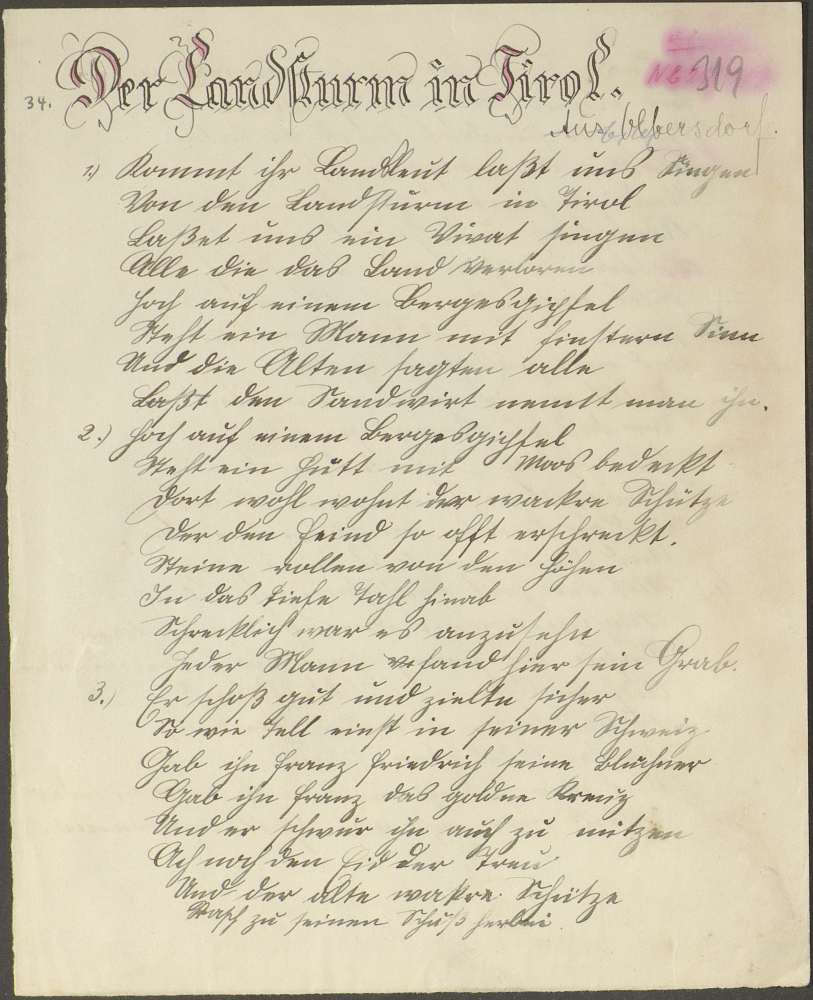 34. Der Landsturm in Tirol.
319
Aus Olbersdorf.
1.) Kommt ihr Landsleut laßt uns Singen
Von den Landsturm in Tirol
Laßet uns ein Vivat singen
Alle die das Land verloren
Hoch auf einem Bergesgipfel
Steht ein Mann mit finstern Sinn
Und die Alten sagten alle
Laßt den Sandwirt nennt man ihn.
2.) Hoch auf einem Bergesgipfel
Steht ein Hütt mit Moos bedeckt
Dort wohl wohnt der wackre Schütze
Der den Feind so offt erschreckt.
Steine rollen von den Höhen
In das tiefe Tahl hinab
Schrecklich war es anzusehn
Jeder Mann fand hier sein Grab.
3.) Er schoß gut und zielte sicher
So wie Tell einst in seiner Schweiz
Gab ihn Franz Friedrich seine
Gab ihn Franz das goldne Kreuz
Und er schwur ihn auch zu nützen
Ach noch den Eid der Treu
Und der alte wakre Schütze
Rasch zu seinen Schuß herbei